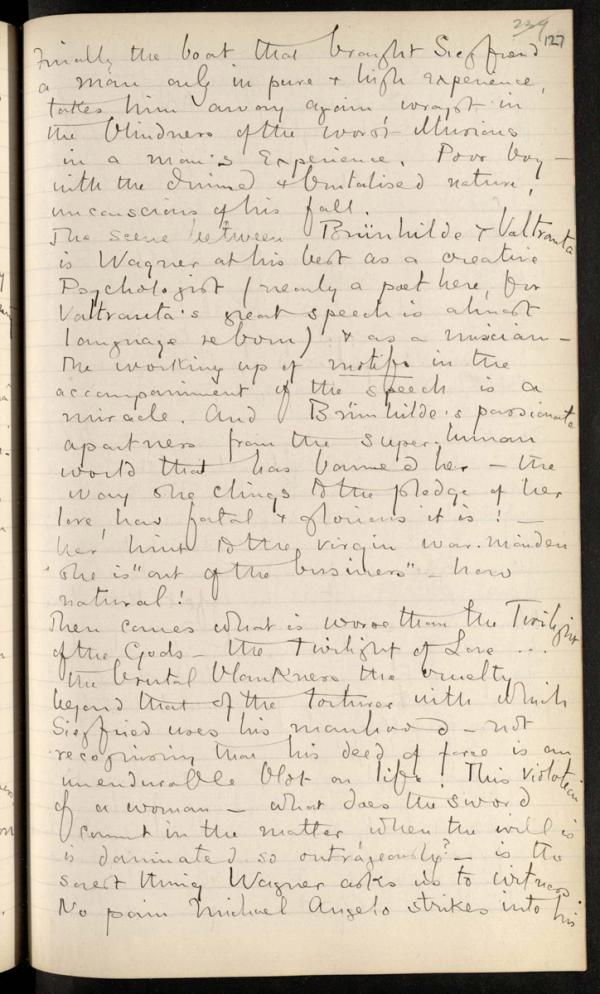 229
127
Finally the boat that brought Siegfried
a man only in pure & high experience,
takes him away again wrapt in
the blindness of the worst illusions
in a man's Experience. Poor boy –
with the divined & brutalised nature,
unconscious of his fall.
The scene between Brünhilde & Valtrauta
is Wagner at his best as a creative
Psychologist (nearly a poet here, for
Valtrauta's great speech is almost
language reborn) & as a musician –
The working up of motifs in the
accompaniment of the speech is a
miracle. And Brünhilde's passionate
apartness from the super-human
world that has banned her – the
way she clings to the pledge of her
love, how fatal & glorious it is! –
her hint to the virgin war-maiden
she is "out of the business" – how
natural!
Then comes what is worse than the Twilight
of the Gods – the Twilight of Love ...
The brutal blankness the cruelty
beyond that of the torturer with which
Siegfried uses his manhood – not
recognising that his deed of force is an
unendurable blot on life! This violation
of a woman – what does the sword
count in the matter when the will is
is dominated so outrageously? – is the
sorest thing Wagner asks us to witness.
No pain Michael Angelo strikes into his